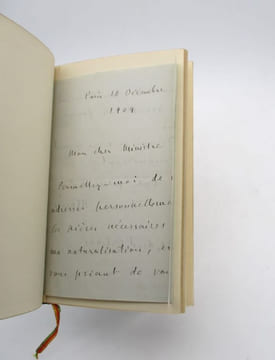 Paris 10 Décembre
1909
Mon cher Ministre
Permettez-moi de v
adresser personnelleme
les pièces nécessaires
ma naturalisation, e
vous priant de vou